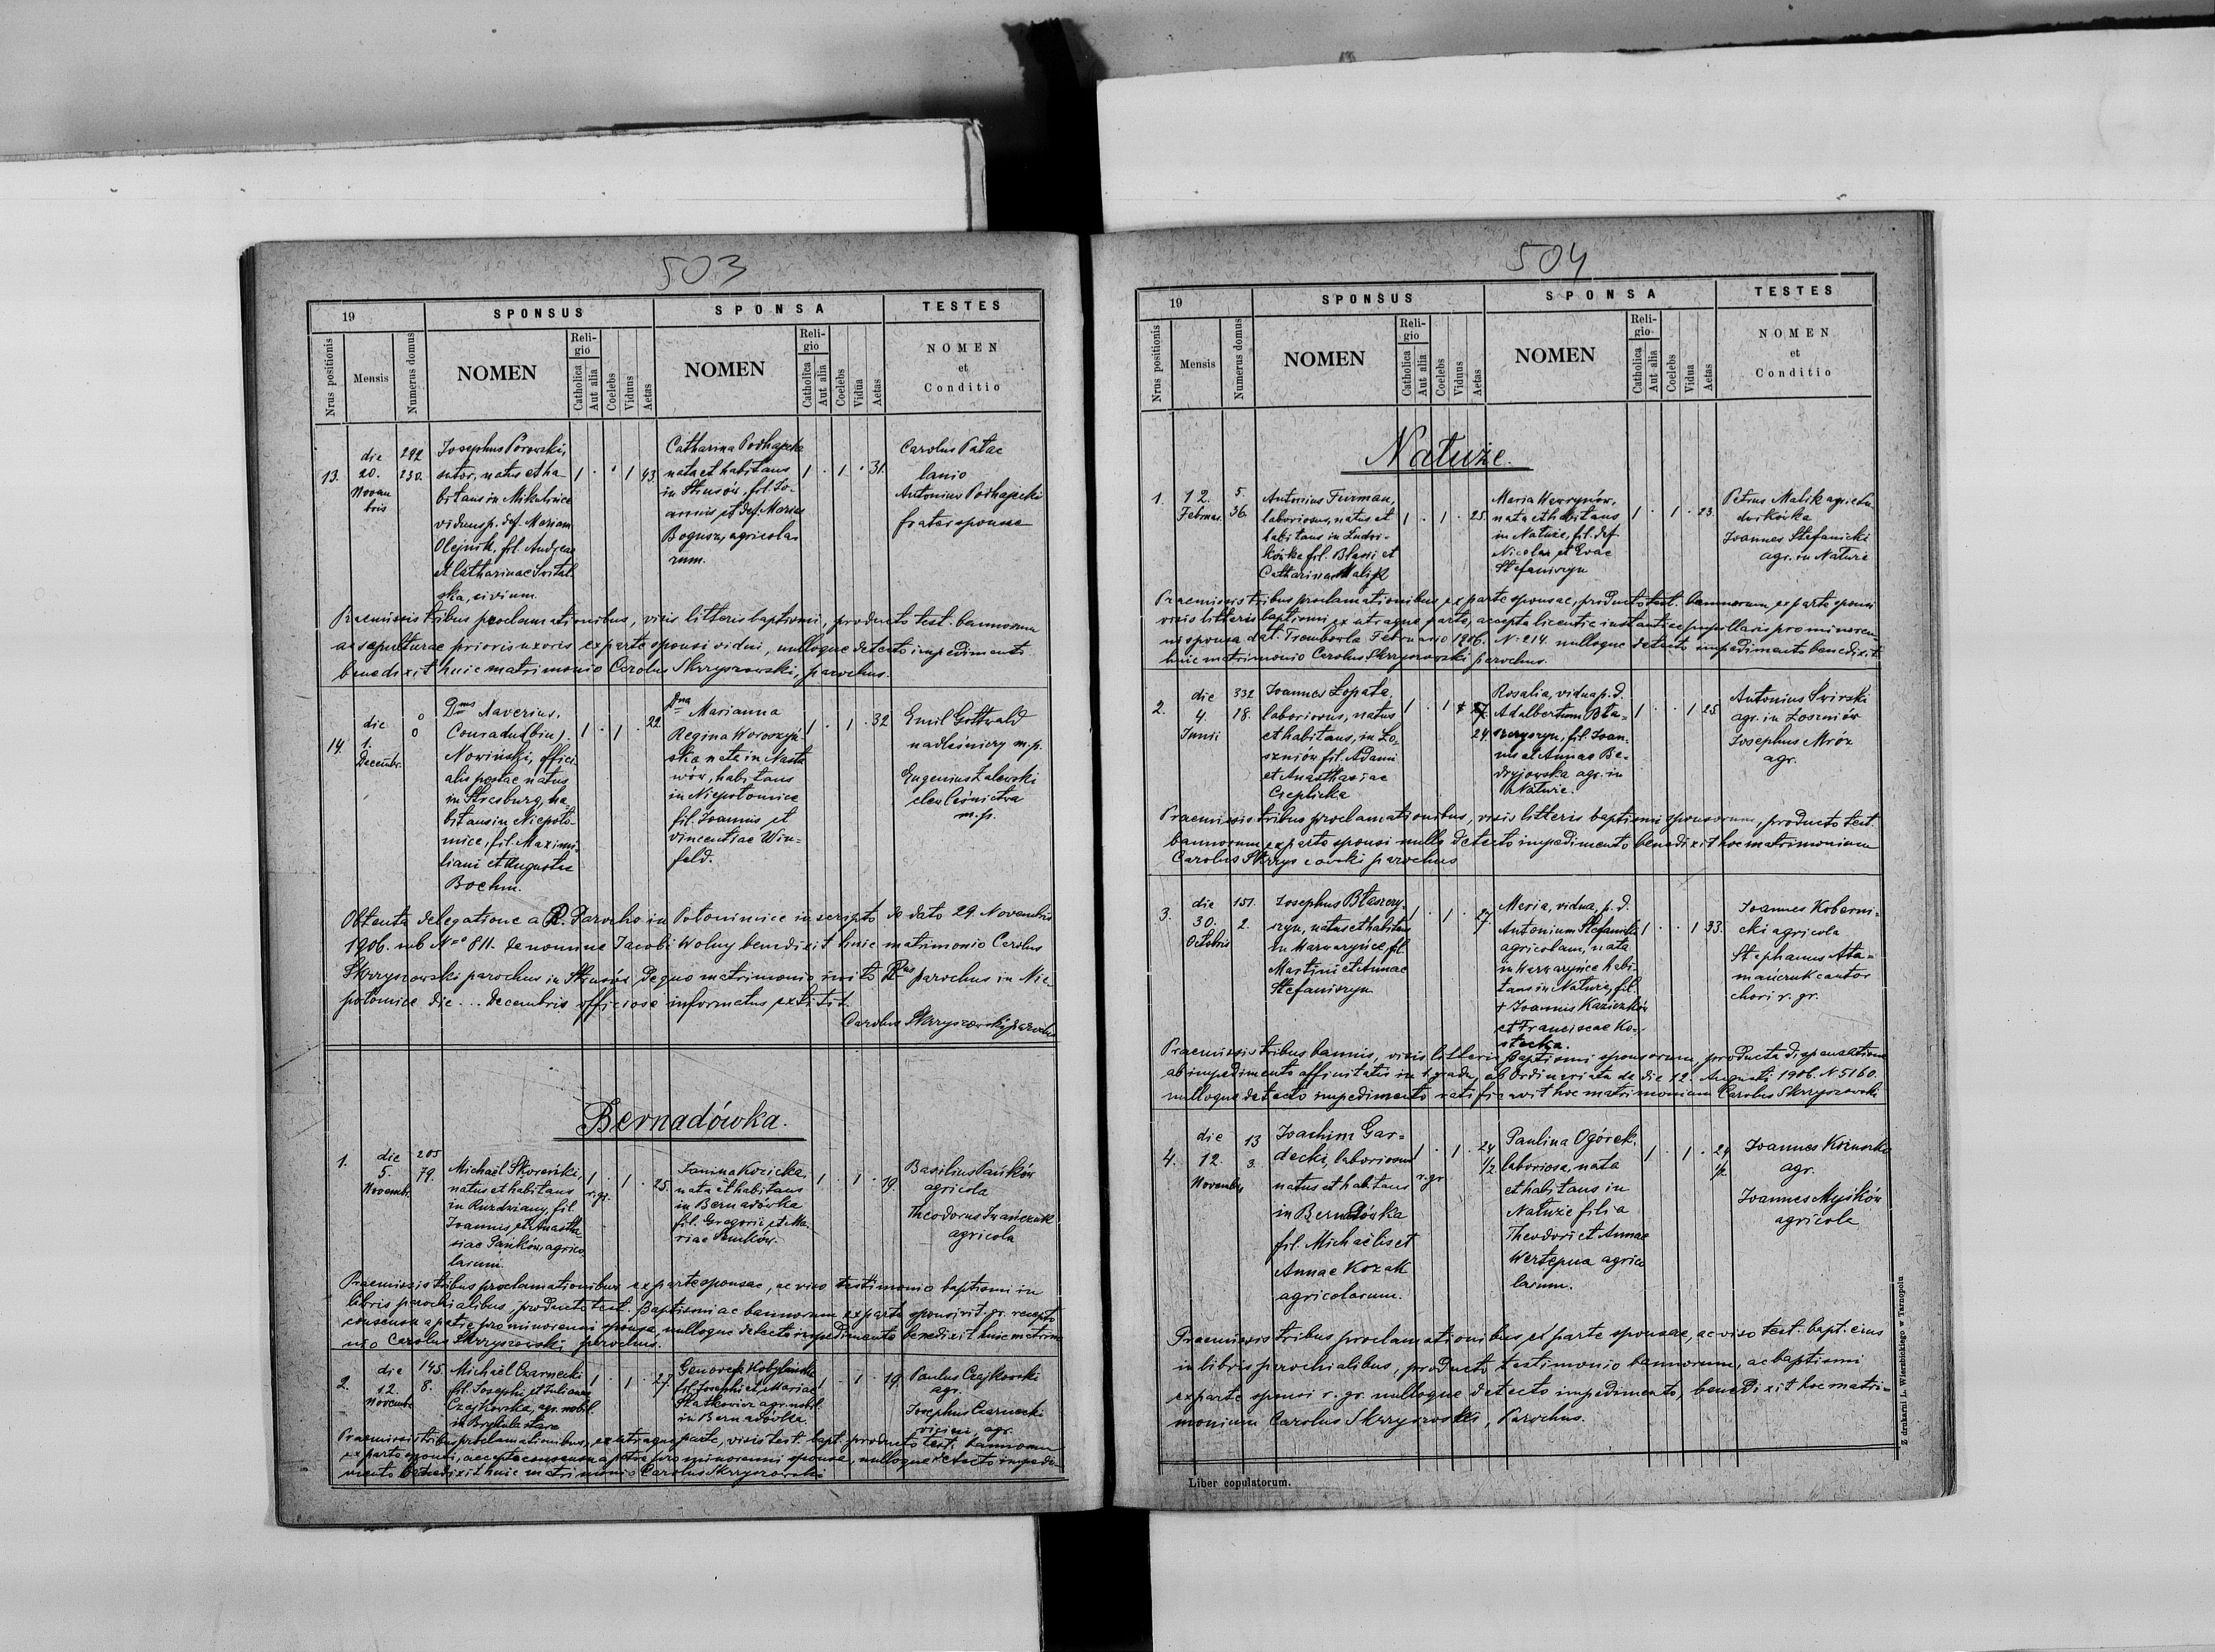 503
19
SPONSUS
SPONSA
TESTES
Nrus positionis
Mensis
Numerus domus
NOMEN
Religio
Catholica
Aut alia
Coelebs
Viduus
Aetas
NOMEN
Religio
Catholica
Aut alia
Coelebs
Vidua
Aetas
NOMEN
et
Conditio
13.
die
20.
Novem
bris
292
230.
Josephus Porowski,
sutor, natus et ha-
bitans in Mikulińce
viduus p. def. Mariam
Olejnik, fil. Andreae
et Catharinae Swital
ska, civium.
1 . . 1 43.
Catharina Podhajecka
nata et habitans
in Strusów, fil. Jo-
annis et def. Mariae
Bogusz, agricola-
rum.
1 . 1 . 31.
Carolus Patac
lanio
Antonius Podhajecki
frater sponsae
Praemissis tribus proclamationibus, visis litteris baptismi, producto test. bannorum
ac sepulturae prioris uxoris ex parte sponsi vidui, nulloque detecto impedimento
benedixit huic matrimonio Carolus Skrzyszowski, parochus.
14.
die
1.
Decembr.
0
0
Dnus Xaverius,
Conradus (bin)
Nowiński, offici
alis postae natus
in Strasburg, ha-
bitans in Niepoło-
mice, fil. Maximi-
liani et Augustae
Boehm.
1 . 1 . 22
Dna Marianna
Regina Woroszyń-
ska nata in Nasta
wów, habitans
in Niepołomice
fil. Joannis et
Vincentiae Win-
feld.
1 . 1 . 32
Emil Gottwald
nadleśniczy m.p.
Eugenius Zalewski
elew leśnictwa
m.p.
Obtenta delegatione a R. Parocho in Połomnice in scripto de dato 29. Novembris
1906. sub Nro 811. de nomine Jacobi Wolny benedixit huic matrimonio Carolus
Skrzyszowski parochus in Strusów. De quo matrimonio inito Rdus parochus in Nie-
połomice die ... Decembris officiose informatus extitit.
Carolus Skrzyszowski parochus
Bernadówka.
1.
die
5.
Novembr.
205
79.
Michaël Skoreński,
natus et habitans
in Ruzdziany, fil.
Joannis et Anasta
siae Pańków, agrico
larum.
1 r.gr. . 1 . 25.
Janina Kozicka,
nata et habitans
in Bernadówka
fil. Gregorii et Ma-
riae Senków.
1 . 1 . 19.
Basilius Pańków
agricola
Theodorus Iwańczuk
agricola
Praemissis tribus proclamationibus ex parte sponsae, ac viso testimonio baptismi in
libris parochialibus, producto test. Baptismi ac bannorum ex parte sponsi rit. gr. recepto
consensu a patre pro minorenni sponsa, nulloque detecto impedimento benedixit huic matrimo
nio Carolus Skrzyszowski parochus.
2.
die
12.
Novembr.
145.
8.
Michaël Czarnecki
fil. Josephi et Julianae
Czajkowska, agr. nobil.
in Brykula stara
1 . 1 . 27.
Genovefa Kobylańska
fil. Josephi et Mariae
Statkowicz agr. nobil.
in Bernadówka.
1 . 1 . 19.
Paulus Czajkowski
agr.
Josephus Czarnecki
vicini, agr.
Praemissis tribus proclamationibus, ex utraque parte, visis test. bapt. producto test. bannorum
ex parte sponsi, accepto consensu a patre pro minorenni sponsa, nulloque detecto impedi-
mento benedixit huic matrimonio Carolus Skrzyszowski
504
19
SPONSUS
SPONSA
TESTES
Nrus positionis
Mensis
Numerus domus
NOMEN
Religio
Catholica
Aut alia
Coelebs
Viduus
Aetas
NOMEN
Religio
Catholica
Aut alia
Coelebs
Vidua
Aetas
NOMEN
et
Conditio
Natuże.
1.
12.
Februar.
5.
36.
Antonius Furman,
laboriosus, natus et
habitans in Ludwi-
kówka fil. Blasii et
Catharinae Malik
1 . 1 . 25.
Maria Wawrynów,
nata et habitans
in Natuże, fil. def
Nicolai et Evae
Stefaniszyn
1 . 1 . 23.
Petrus Malik agr. in Lu
dwikówka
Joannes Stefanicki
agr. in Natuże
Praemissis tribus proclamationibus, ex parte sponsae, producto test. bannorum ex parte sponsi
visis litteris baptismi ex utraque parte, accepta licentia instantiae pupillaris pro minoren-
ni sponsa dat. Trembowla Februario 1906. N. 214. nulloque detecto impedimento benedixit
huic matrimonio Carolus Skrzyszowski parochus.
2.
die
4.
Junii
332
18.
Joannes Łopata,
laboriosus, natus
et habitans, in Ło-
szniów fil. Adami
et Anasthasiae
Czeplicka
1 . 1 . 24
Rosalia, vidua p. d.
Adalbertum Bła-
szczyszyn, fil. Joan-
nis et Annae Be-
dryjowska agr. in
Natuże.
1 . . 1 25
Antonius Świrski
agr. in Łoszniów
Josephus Mróz
agr.
Praemissis tribus proclamationibus, visis litteris baptismi sponsorum, producto test.
bannorum ex parte sponsi nullo detecto impedimento benedixit hoc matrimonium
Carolus Skrzyszowski parochus
3.
die
30.
Octobris
151.
2.
Josephus Błaszczy-
szyn, natus et habitans
in Warwaryńce, fil.
Martini et Annae
Stefaniszyn
1 . 1 . 27.
Maria, vidua, p. d.
Antonium Stefanicki
agricolam, nata
in Warwaryńce habi-
tans in Natuże, fil.
+ Joannis Kaziczków
et Franciscae Ko-
stecka.
1 . . 1 33.
Joannes Koberni-
cki agricola
Stephanus Ata-
mańczuk cantor
chori r. gr.
Praemissis tribus bannis, visis litteris Baptismi sponsorum, producta dispensatione
ab impedimento affinitatis in 1. gradu, ab Ordinariatu de die 12. Augusti 1906. N 5160.
nulloque detecto impedimento ratificavit hoc matrimonium Carolus Skrzyszowski
4.
die
12.
Novembris
13
3.
Joachim Gar-
decki, laboriosus
natus et habitans
in Bernadówka
fil. Michaëlis et
Annae Kozak
agricolarum.
1 r. gr . 1 . 24 1/2.
Paulina Ogórek,
laboriosa, nata
et habitans in
Natuże filia
Theodori et Annae
Wertepna agrico
larum.
1 . 1 . 24 1/2
Joannes Kozuszko
agr.
Joannes Myśków
agricola
Praemissis tribus proclamationibus ex parte sponsae, ac viso test. bapt. eius
in libris parochialibus, producto testimonio bannorum, ac baptismi
ex parte sponsi r. gr. nulloque detecto impedimento, benedixit hoc matri-
monium Carolus Skrzyszowski, Parochus.
Liber copulatorum.
Z drukarni L. Wierzbickiego w Tarnopolu